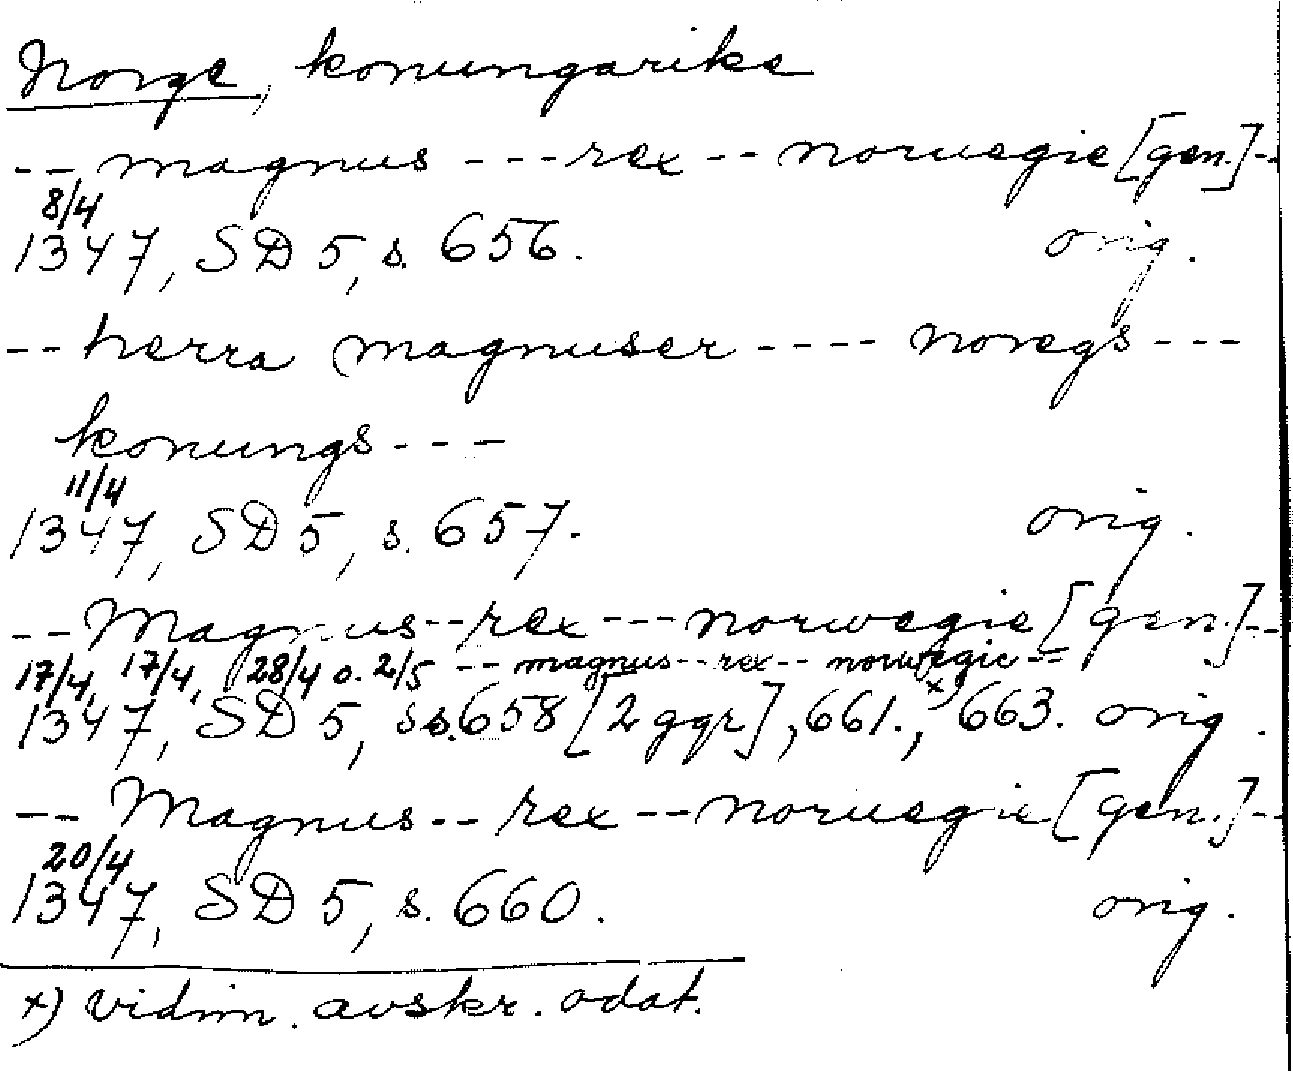 Norge, konungarike
-- magnus --- rex -- noruegie [gen.] --
8/4
1347, SD 5, s. 656. orig.
-- herra magnuser ---- noregs ---
konungs ---
11/4
1347, SD 5, s. 657. orig.
-- Magnus -- rex --- norwegie [gen.] --
17/4, 17/4, 28/4 o. 2/5 -- magnus -- rex -- norwegie --
1347, SD 5, ss. 658 [2 ggr], 661.x), 663. orig.
-- Magnus -- rex -- noruegie [gen.] --
20/4
1347, SD 5, s. 660. orig.
x) vidim. avskr. odat.